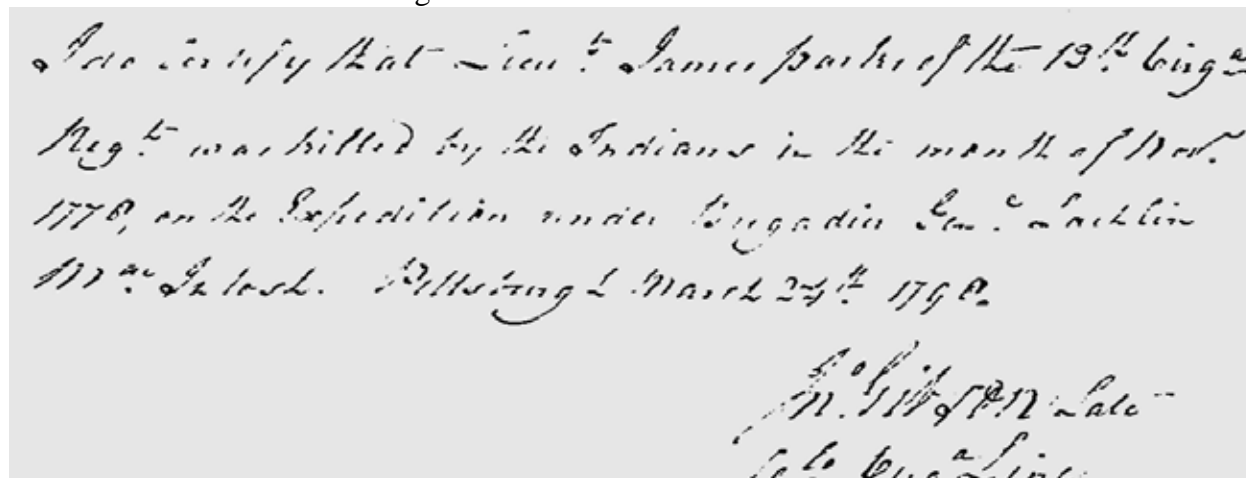 I do certify that Lieut. James parks of the 13th Virga
Regt. was killed by the Indians in the month of Nov.
1778, on the Expedition under Brigadier Genl. Lachlin
Mac. Intosh. Pittsburgh March 24th. 1798.
Jno. Gibson Late
Colo. Virga Line